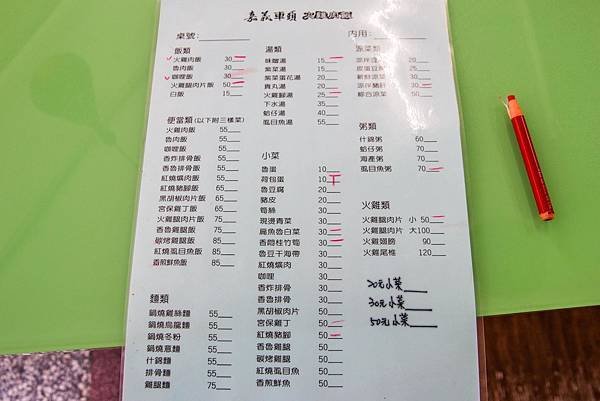 嘉義車頭 火雞肉飯
桌號:
內用:
飯類
火雞肉飯 30
魯肉飯 30
咖哩飯 30
火雞腿肉片飯 50
白飯 15
便當類(以下附三樣菜)
火雞肉飯 55
魯肉飯 55
咖哩飯 55
香炸排骨飯 55
香魯排骨飯 55
紅燒爌肉飯 55
紅燒豬腳飯 65
黑胡椒肉片飯 65
宮保雞丁飯 65
火雞腿肉片飯 75
香魯雞腿飯 75
碳烤雞腿飯 85
紅燒虱目魚飯 85
香煎鮮魚飯 85
麵類
鍋燒雞絲麵 55
鍋燒烏龍麵 55
鍋燒冬粉 55
鍋燒意麵 55
什錦麵 55
排骨麵 55
雞腿麵 75
湯類
味噌湯 15
紫菜湯 15
紫菜蛋花湯 20
貢丸湯 20
火雞腳湯 25
下水湯 35
蛤仔湯 40
虱目魚湯 50
小菜
魯蛋 10
荷包蛋 10
魯豆腐 20
豬皮 20
筍絲 30
現燙青菜 30
扁魚魯白菜 30
香悶桂竹筍 30
魯豆干海帶 30
紅燒爌肉 30
咖哩 30
香炸排骨 30
香魯排骨 30
黑胡椒肉片 50
宮保雞丁 50
紅燒豬腳 50
香魯雞腿 50
碳烤雞腿 50
紅燒虱目魚 50
香煎鮮魚 50
涼菜類
涼拌 20
皮蛋豆腐 25
涼菜 25
涼拌豬肝 30
綜合涼菜 50
粥類
什錦粥 60
蛤仔粥 70
海產粥 70
虱目魚粥 70
火雞類
火雞腿肉片 小 50
火雞腿肉片 大100
火雞翅膀 90
火雞尾椎 120
20元小菜
30元小菜
50元小菜